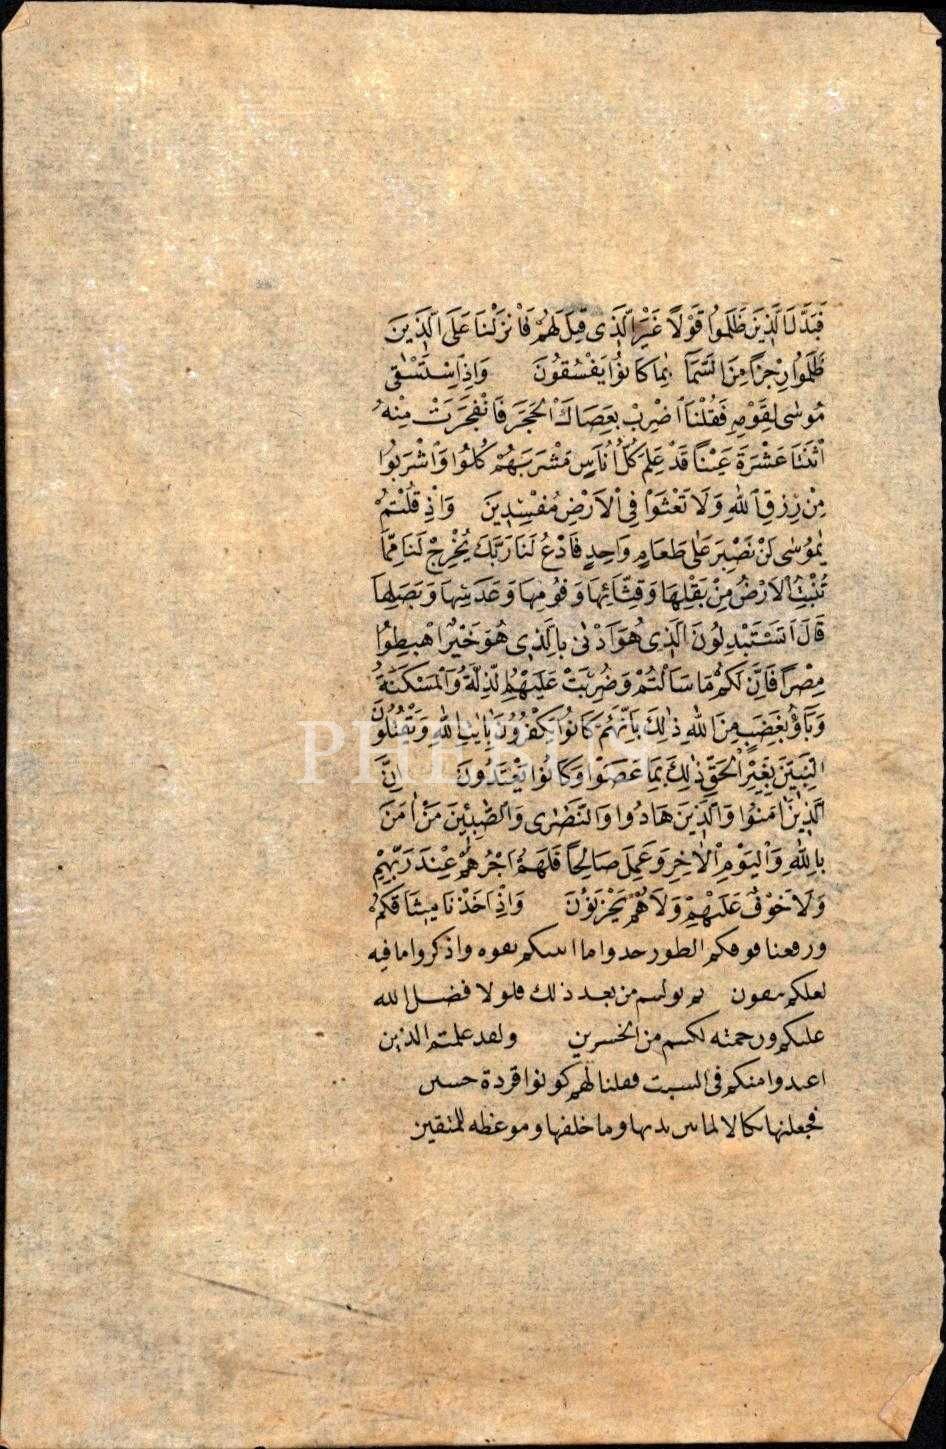 فَبَدَّلَ الَّذِينَ ظَلَمُوا قَوْلًا غَيْرَ الَّذِى قِيلَ لَهُمْ فَاَنْزَلْنَا عَلَى الَّذِينَ
ظَلَمُوا رِجْزًا مِنَ السَّمَآ بِمَا كَانُوا يَفْسُقُونَ وَاِذِ اسْتَسْقٰى
مُوسٰى لِقَوْمِهِ فَقُلْنَا اضْرِبْ بِعَصَاكَ الْحَجَرَ فَانْفَجَرَتْ مِنْهُ
اثْنَتَا عَشْرَةَ عَيْنًا قَدْ عَلِمَ كُلُّ اُنَاسٍ مَشْرَبَهُمْ كُلُوا وَاشْرَبُوا
مِنْ رِزْقِ اللهِ وَلَا تَعْثَوْا فِى الْاَرْضِ مُفْسِدِينَ وَاِذْ قُلْتُمْ
يٰمُوسٰى لَنْ نَصْبِرَ عَلٰى طَعَامٍ وَاحِدٍ فَادْعُ لَنَا رَبَّكَ يُخْرِجْ لَنَا مِمَّا
تُنْبِتُ الْاَرْضُ مِنْ بَقْلِهَا وَقِثَّائِهَا وَفُومِهَا وَعَدَسِهَا وَبَصَلِهَا
قَالَ اَتَسْتَبْدِلُونَ الَّذِى هُوَ اَدْنٰى بِالَّذِى هُوَ خَيْرٌ اهْبِطُوا
مِصْرًا فَاِنَّ لَكُمْ مَا سَاَلْتُمْ وَضُرِبَتْ عَلَيْهِمُ الذِّلَّةُ وَالْمَسْكَنَةُ
وَبَآؤُ بِغَضَبٍ مِنَ اللهِ ذٰلِكَ بِاَنَّهُمْ كَانُوا يَكْفُرُونَ بِاٰيٰتِ اللهِ وَيَقْتُلُونَ
النَّبِيِّنَ بِغَيْرِ الْحَقِّ ذٰلِكَ بِمَا عَصَوْا وَكَانُوا يَعْتَدُونَ اِنَّ
الَّذِينَ اٰمَنُوا وَالَّذِينَ هَادُوا وَالنَّصٰرٰى وَالصّٰبِئِينَ مَنْ اٰمَنَ
بِاللهِ وَالْيَوْمِ الْاٰخِرِ وَعَمِلَ صَالِحًا فَلَهُمْ اَجْرُهُمْ عِنْدَ رَبِّهِمْ
وَلَا خَوْفٌ عَلَيْهِمْ وَلَا هُمْ يَحْزَنُونَ وَاِذْ اَخَذْنَا مِيثَاقَكُمْ
ورفعنا فوقكم الطور خدوا ما اتىىكم بقوه واذكروا ما فيه
لعلكم تتقون ثم توليتم من بعد ذلك فلولا فضل الله
عليكم ورحمته لكنتم من الخسرين ولقد علمتم الذين
اعتدوا منكم فى السبت فقلنا لهم كونوا قردة خسين
فجعلنها نكالا لما بين يديها وما خلفها وموعظه للمتقين
PHEBUS